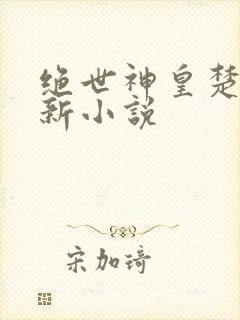 绝世神皇楚
新小说
宋加琦